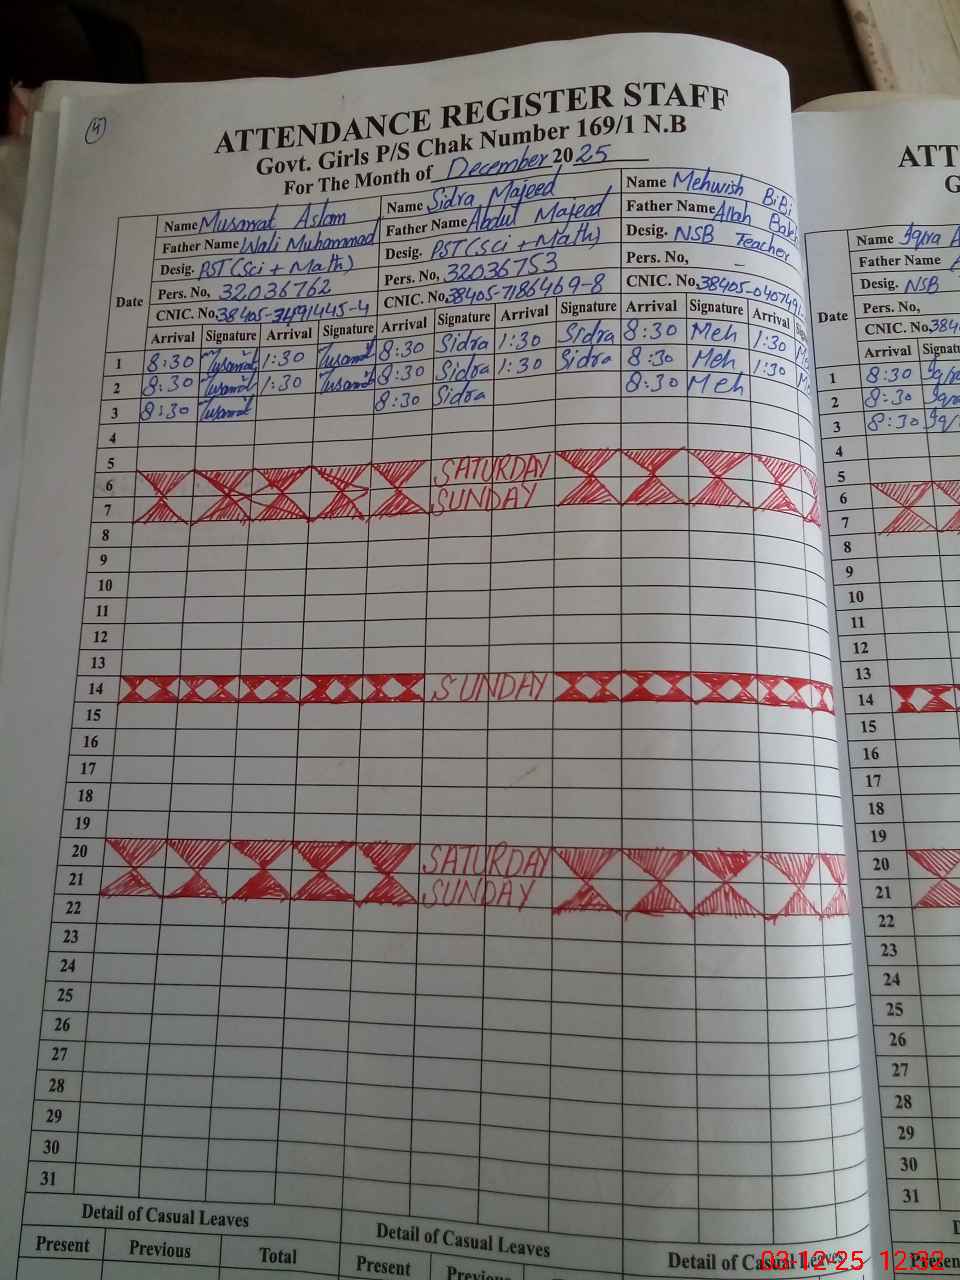 4
ATTENDANCE REGISTER STAFF
Govt. Girls P/S Chak Number 169/1 N.B
For The Month of December 2025
Date
Name Musarrat Aslam
Father Name Wali Muhammad
Desig. PST (Sci + Math)
Pers. No, 32036762
CNIC. No. 38405-3491445-4
Arrival Signature Arrival Signature
Name Sidra Majeed
Father Name Abdul Majeed
Desig. PST (Sci + Math)
Pers. No, 32036753
CNIC. No. 38405-7186469-8
Arrival Signature Arrival Signature
Name Mehwish BiBi
Father Name Allah
Desig. NSB Teacher
Pers. No, -
CNIC. No. 38405-0407491-
Arrival Signature Arrival
1 8:30 Musarrat 1:30 Musarrat 8:30 Sidra 1:30 Sidra 8:30 Meh 1:30
2 8:30 Musarrat 1:30 Musarrat 8:30 Sidra 1:30 Sidra 8:30 Meh 1:30
3 8:30 Musarrat 8:30 Sidra 8:30 Meh
4
5
6 SATURDAY
7 SUNDAY
8
9
10
11
12
13
14 SUNDAY
15
16
17
18
19
20 SATURDAY
21 SUNDAY
22
23
24
25
26
27
28
29
30
31
Detail of Casual Leaves
Present Previous Total
Detail of Casual Leaves
Present Previous
Detail of Casual Leaves
ATT
G
Date
Name Iqra A
Father Name
Desig. NSB
Pers. No,
CNIC. No. 384
Arrival Signatu
1 8:30 Iqra
2 8:30 Iqra
3 8:30 Iqra
4
5
6
7
8
9
10
11
12
13
14
15
16
17
18
19
20
21
22
23
24
25
26
27
28
29
30
31
D
Presen
03-12-25 12:32